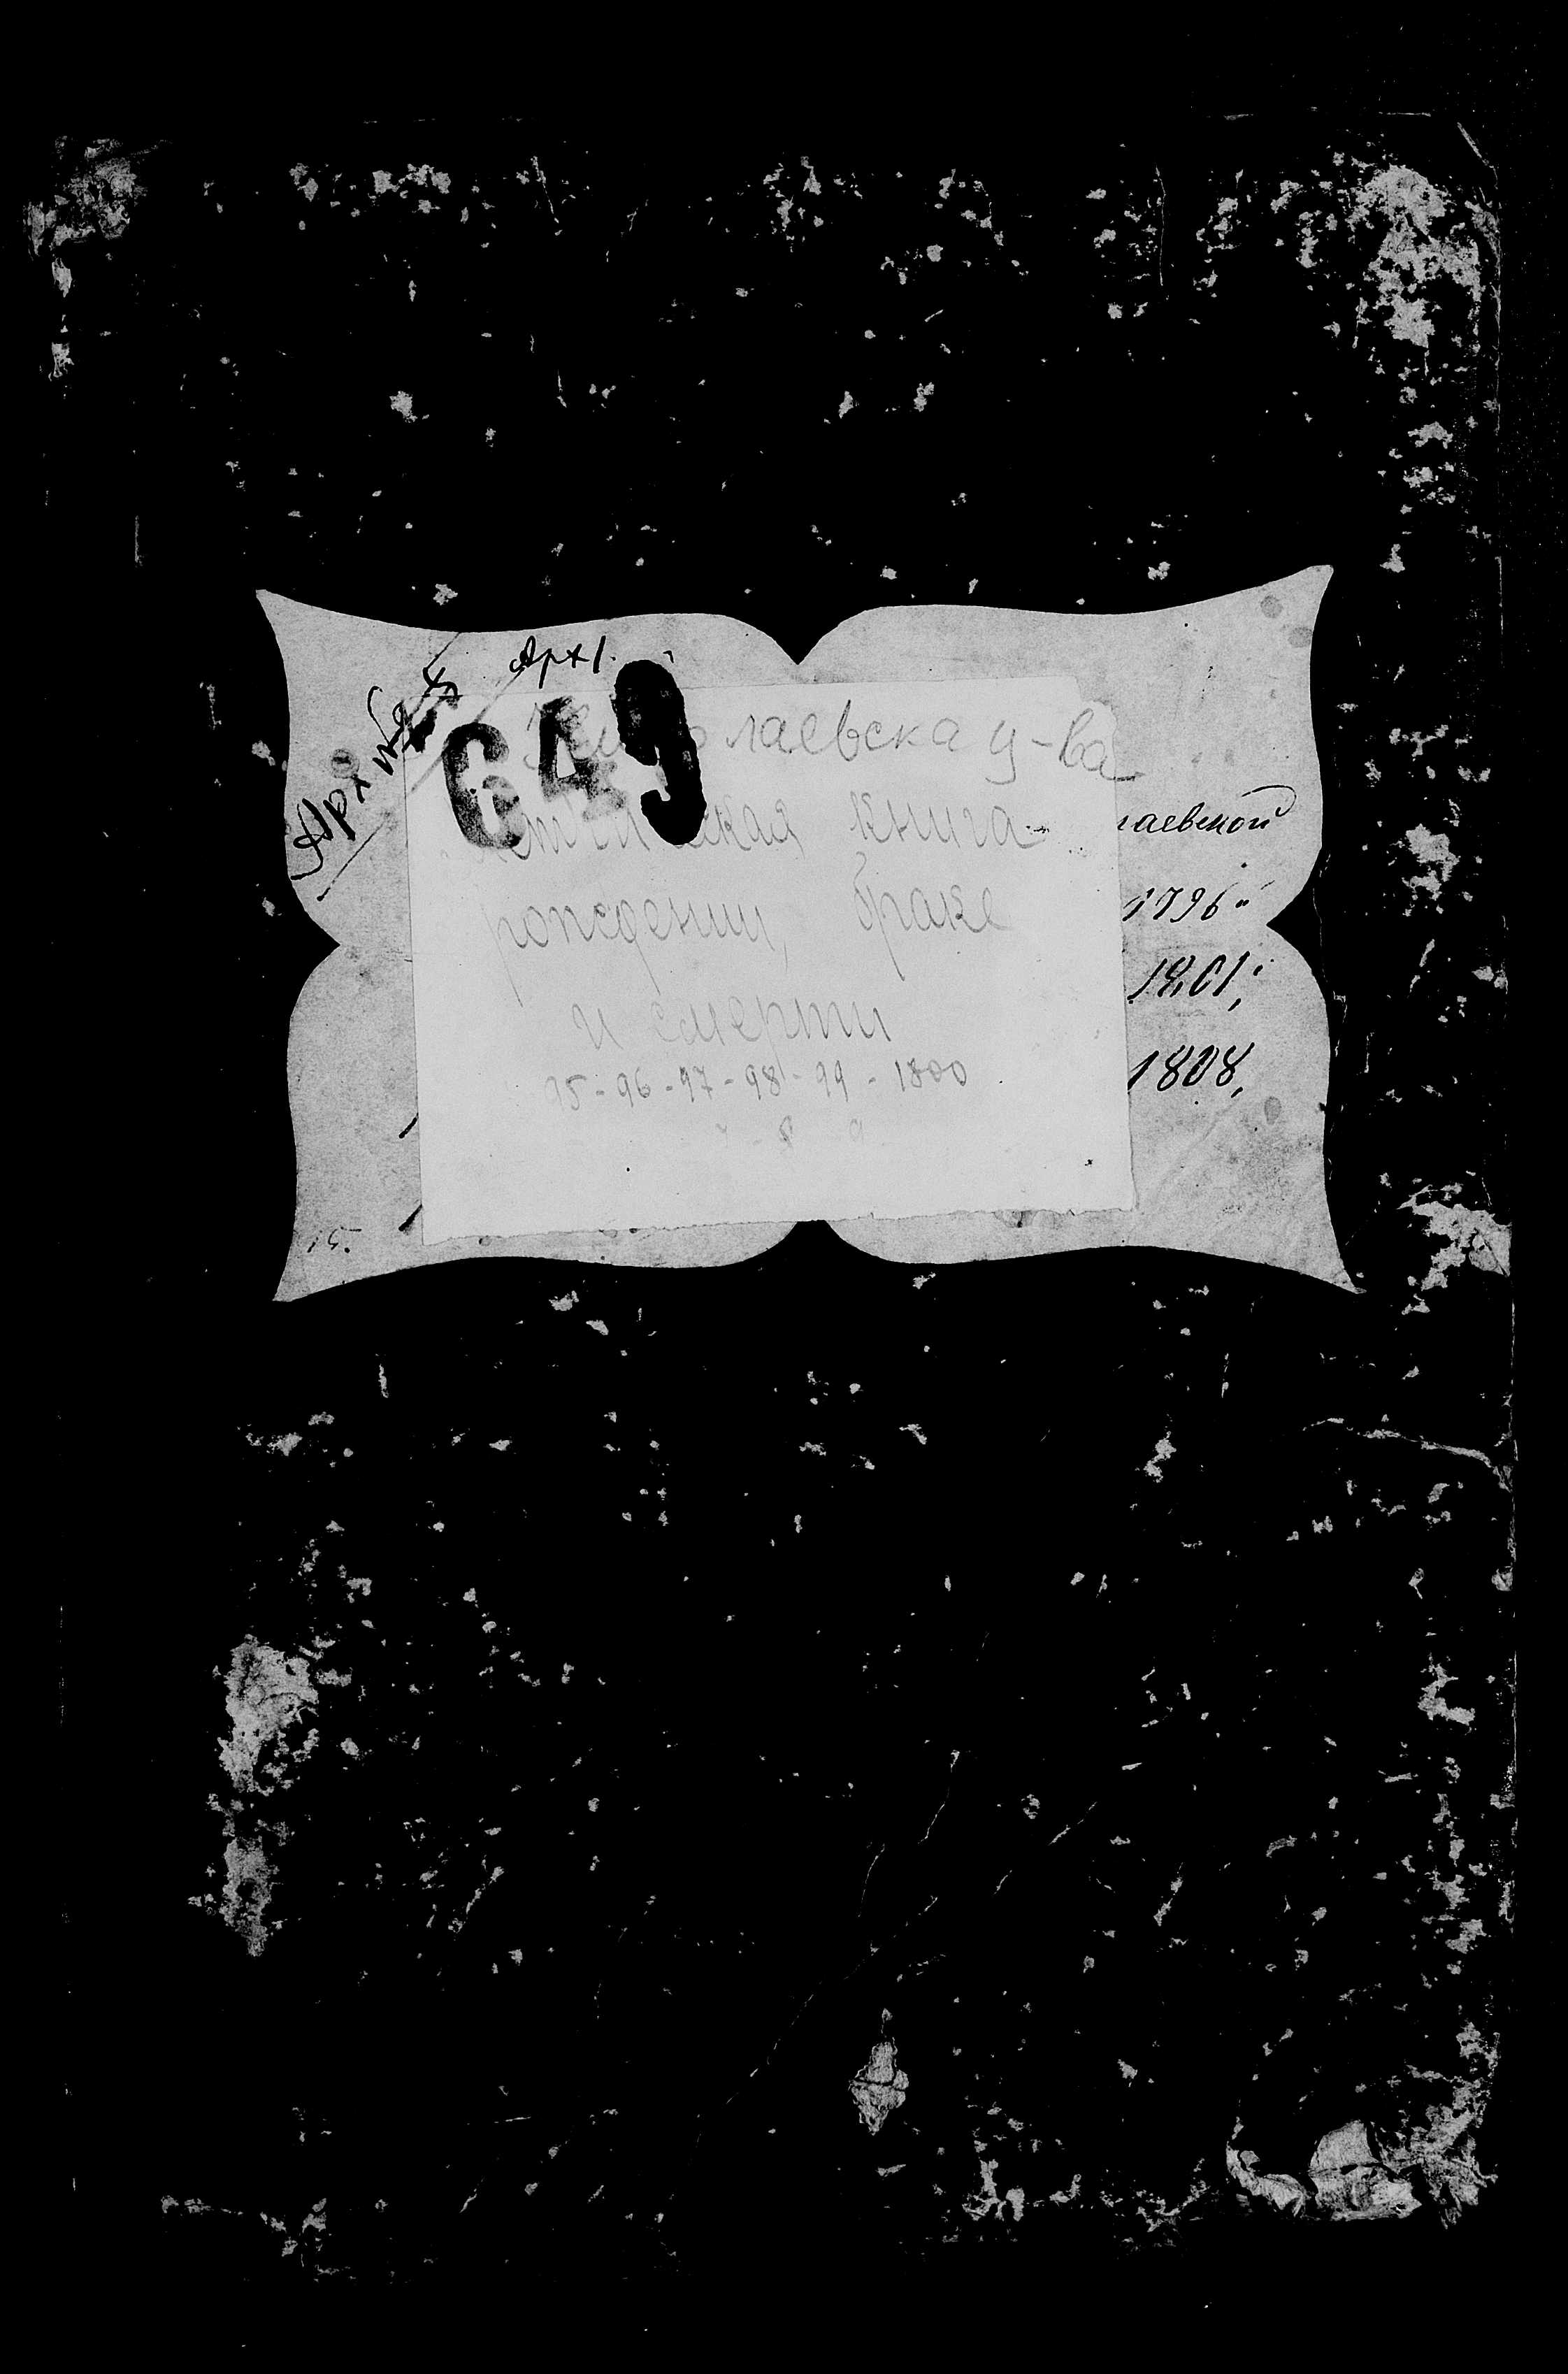 Арх 1.
Арх №
649
лаевска ц-ва
книга
рождении, браке
и смерти
95-96-97-98-99-1800
8 9
лаевской
1796
1801,
1808,
15.